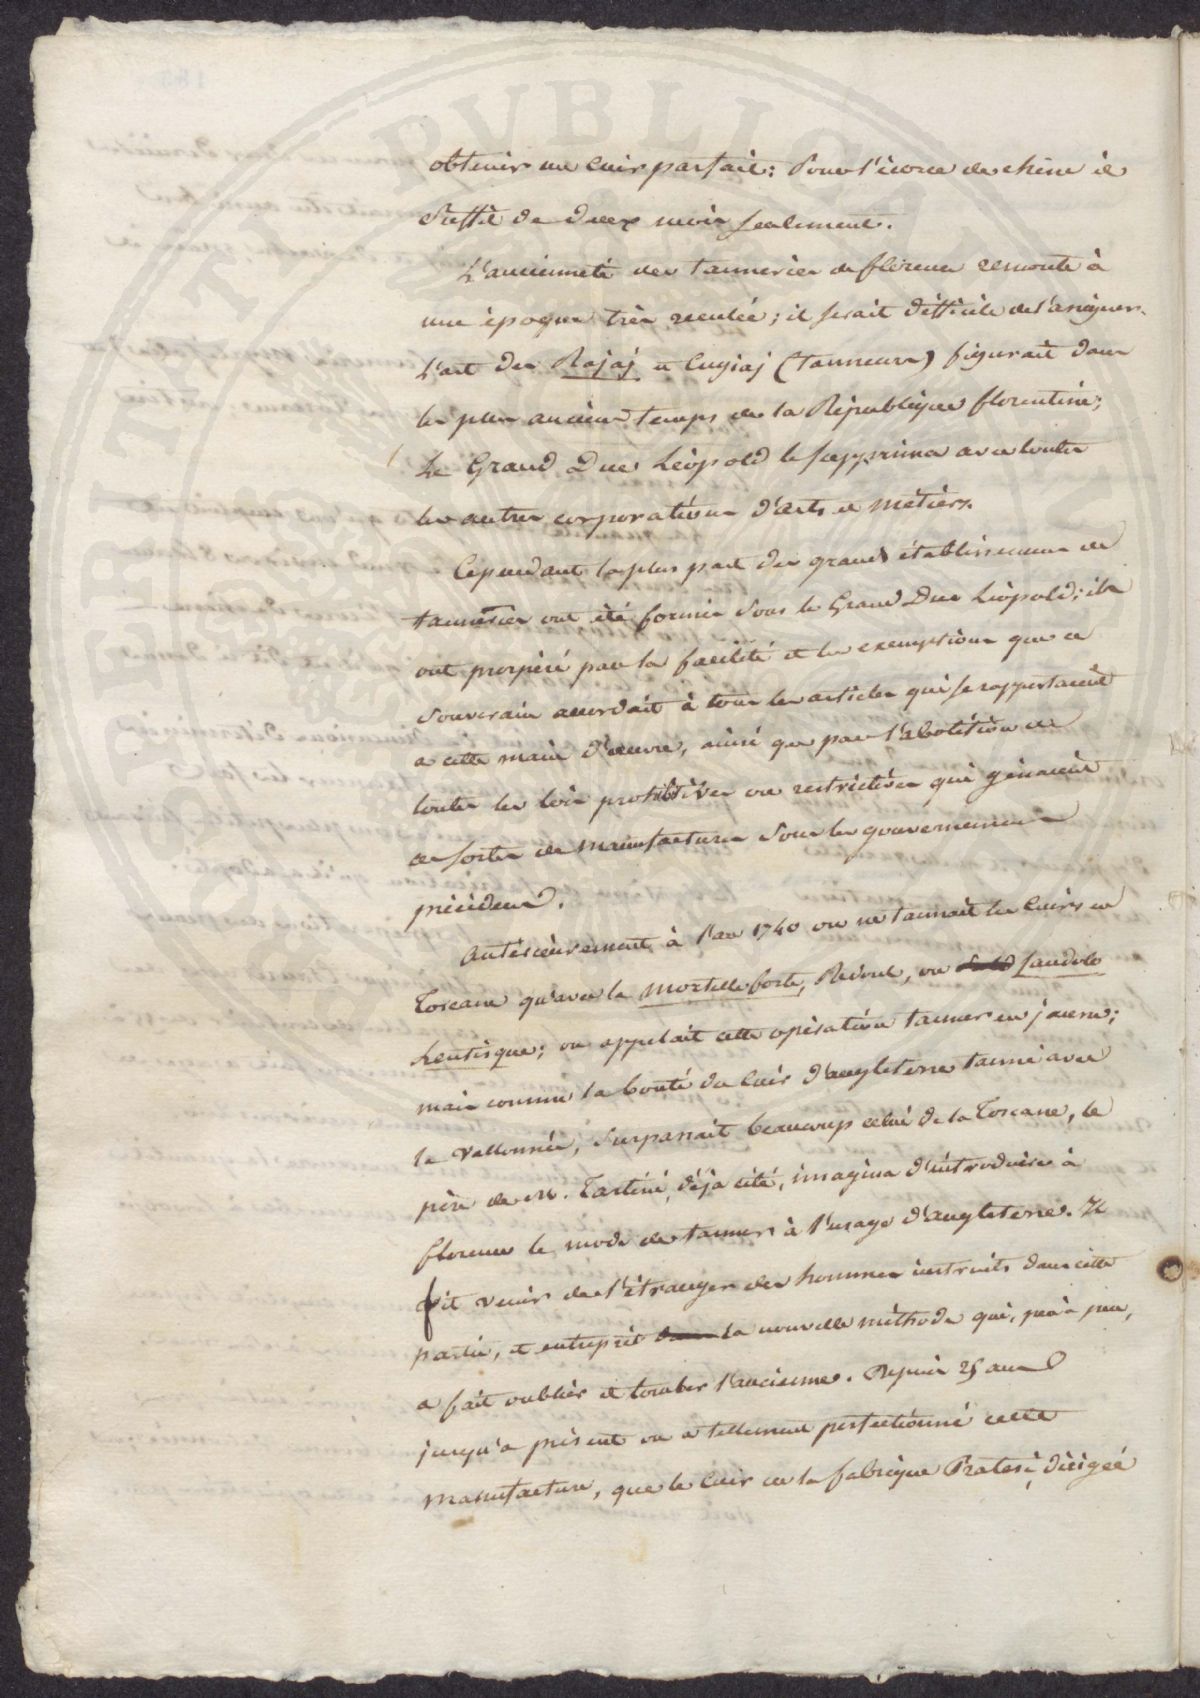 obtenir un cuir parfait: Pour l'écorce de chêne il
Suffit de deux mois seulement.
L'ancienneté des tanneries de florence remonte à
une époque très reculée; il serait difficile de l'assigner.
L'art des Rajaj et Cugiaj (tanneurs) figurait dans
les plus anciens temps de la République florentine;
Le Grand Duc Léopold le supprima avec toutes
les autres corporations d'arts et métiers.
Cependant la plus part des grands établissemens de
tanneries ont été formés sous le Grand Duc Léopold; ils
ont prospéré par la facilité et les exemptions que ce
Souverain accordait à tous les articles qui se rapportaient
a cette main d'œuvre, ainsi que par l'abolition de
toutes les lois prohibitives ou restrictives qui gênaient
ces sortes de manufactures sous les gouvernemens
précédens.
Antérieurement à l'an 1740 on ne tannait les cuirs en
Toscane qu'avec la mortelle forte, Redoul, ou Sandolo
Lentisque; on appelait cette opération tanner en jaune;
mais comme la bonté du cuir d'angleterre tanné avec
la vallonnée, surpassait beaucoup celui de la Toscane, le
père de M. Tartini, déjà cité, imagina d'introduire à
florence le mode de tanner à l'usage d'angleterre. Il
fit venir de l'étranger des hommes instruits dans cette
partie, et entreprit la nouvelle méthode qui, peu à peu,
a fait oublier et tomber l'ancienne. Depuis 25 ans
jusqu'a présent on a tellement perfectionné cette
manufacture, que le cuir de la fabrique Pratesi, dirigée